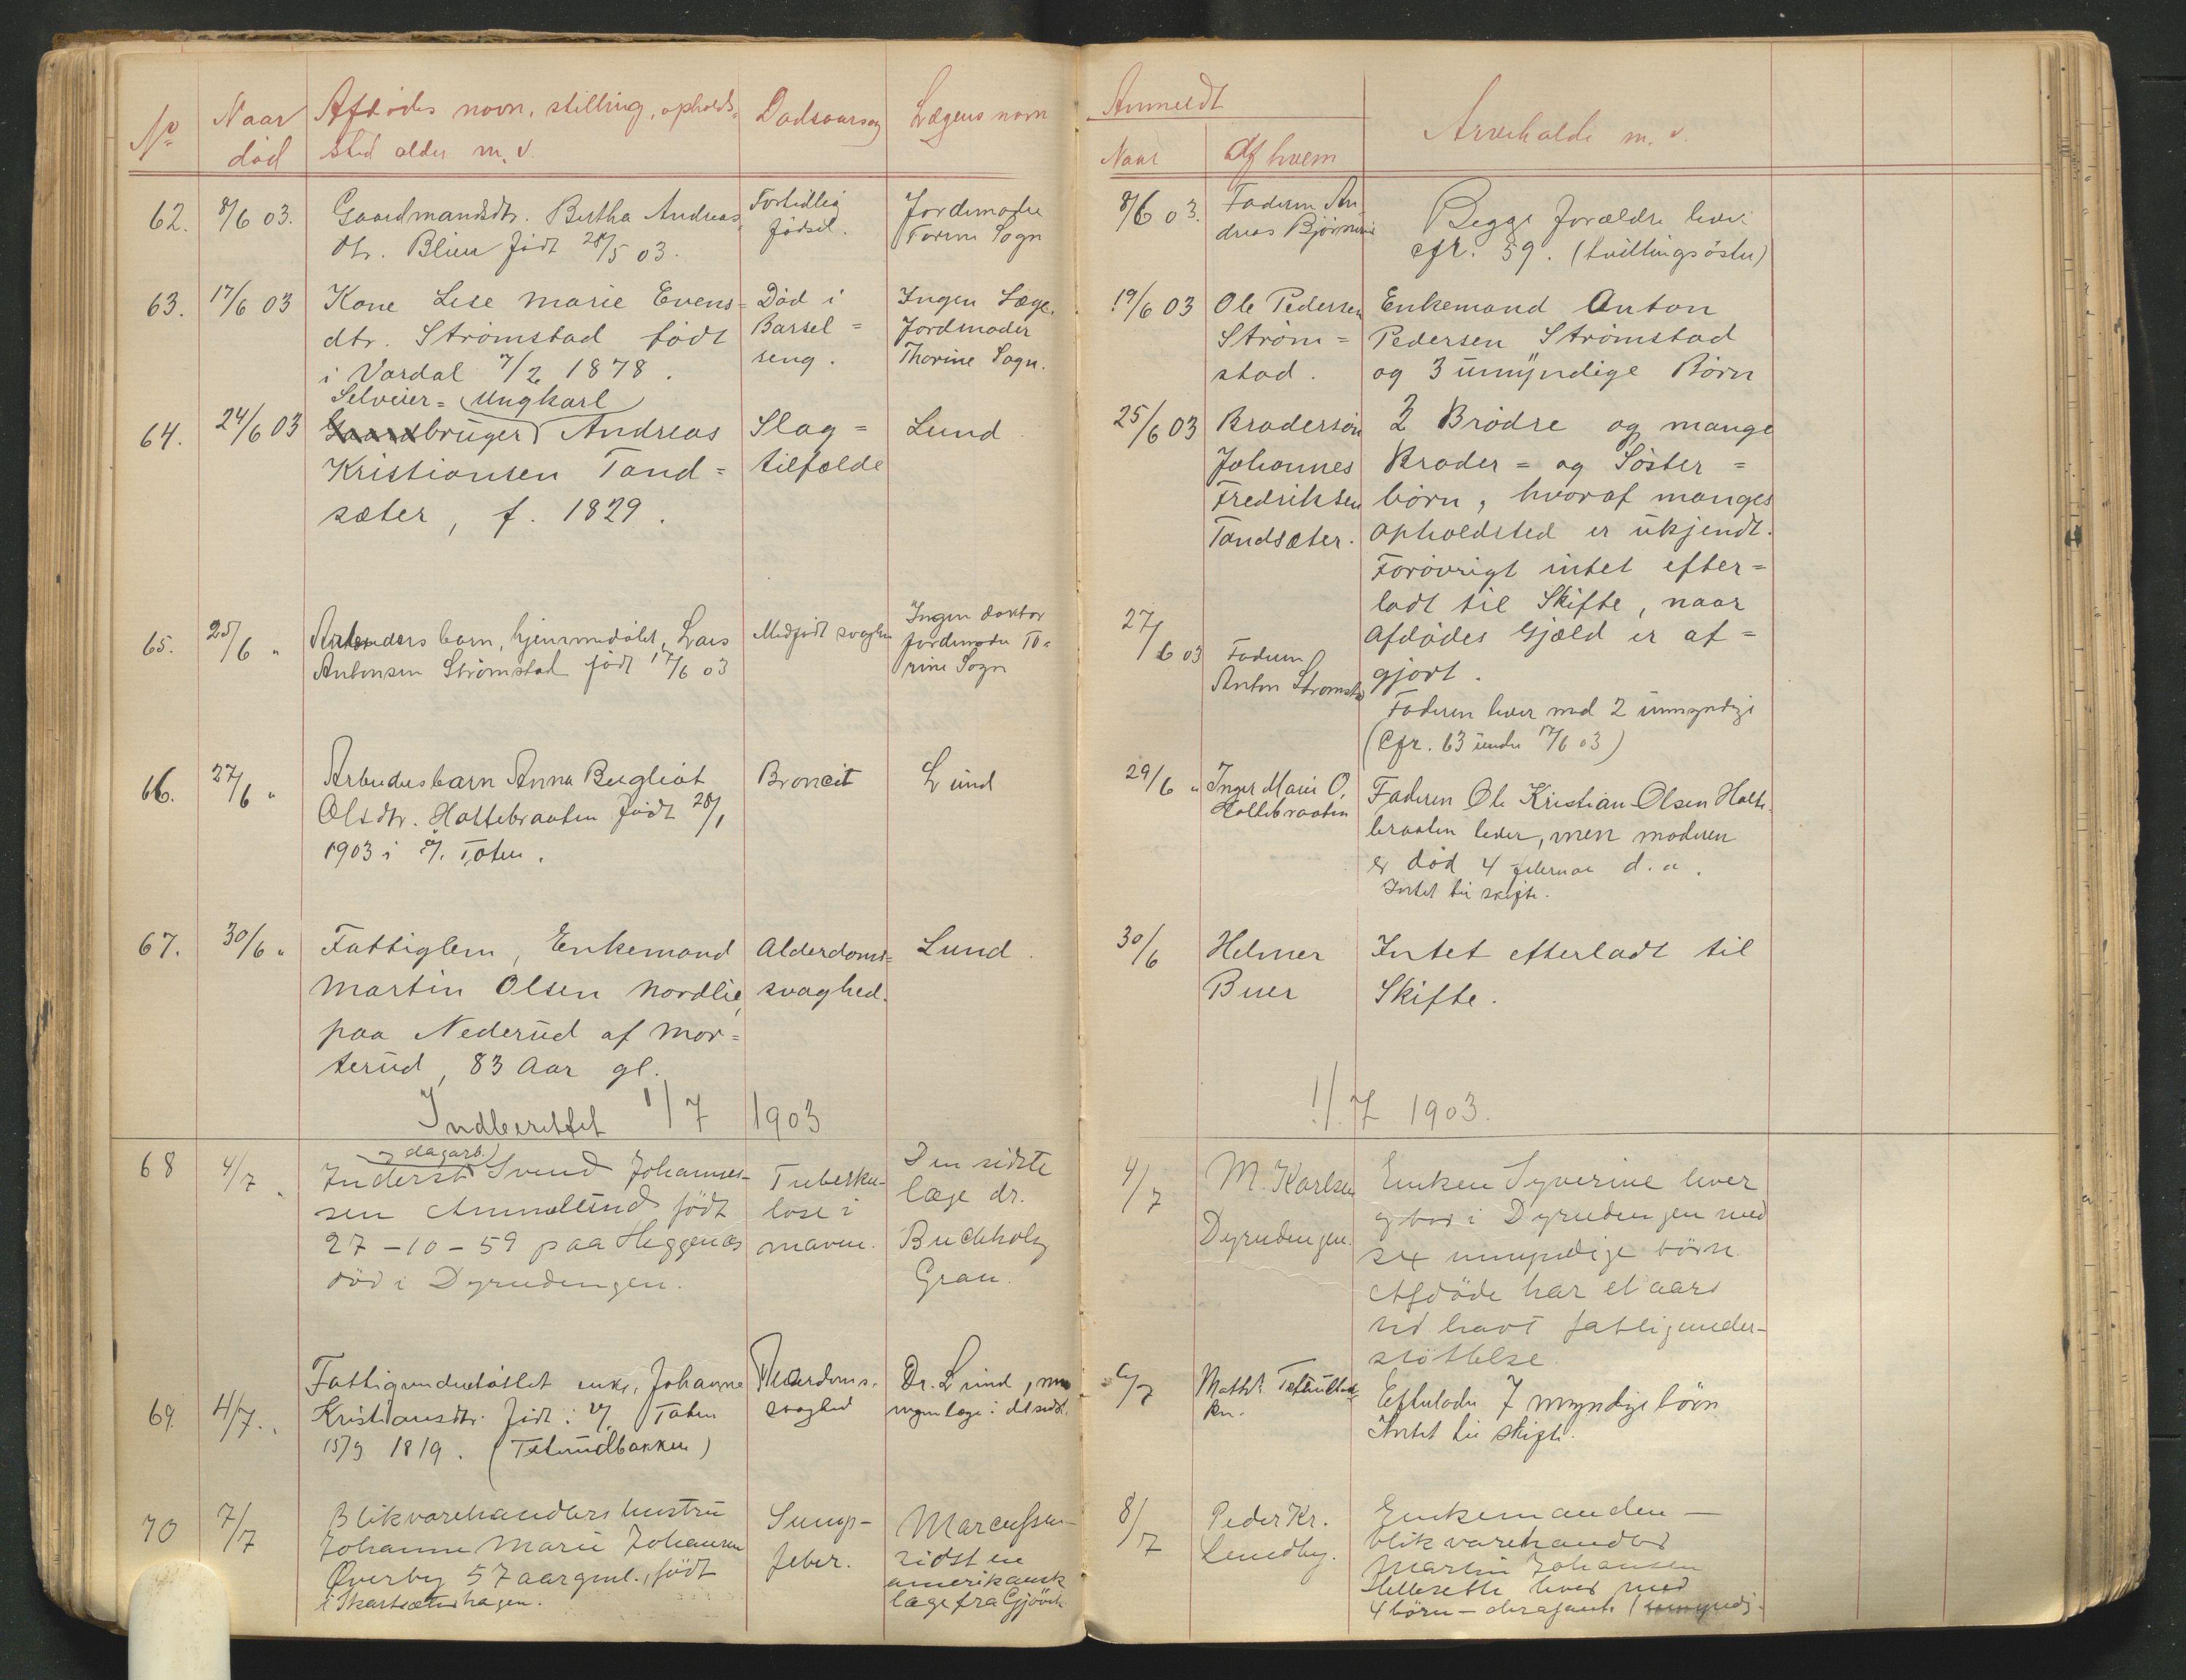 No
Naar død
Afdødes navn, stilling, opholds=
sted alder m. v.
Dødsaarsag
Lægens navn
Anmeldt
Naar
Af hvem
Arveholde m. v.
62. 8/6 03.
Gaardmandsdtr. Bertha Andreas
dtr. Blien født 28/5 03.
Fortidlig
fødsel.
Jordemoder
Torine Sogn
8/6 03.
Faderen An
dreas Bjørnerud
Begge forældre lever
cfr. 59. (tvillingsøster)
63. 17/6 03
Kone Lise Marie Evens=
dtr. Strømstad født
i Vardal 7/2 1878.
Død i
Barsel=
seng.
Ingen Læge.
Jordmoder
Thorine Sogn.
19/6 03
Ole Pedersen
Strøm=
stad.
Enkemand Anton
Pedersen Strømstad
og 3 umyndige Børn
64. 24/6 03
Selveier= (Ungkarl)
Gaardbruger Andreas
Kristiansen Tand=
sæter, f. 1829.
Slag=
tilfælde
Lund.
25/6 03
Brodersøn
Johannes
Fredriksen
Tandsæter.
2 Brødre og mange
Broder= og Søster=
børn, hvoraf manges
Opholdsted er ukjendt.
Forøvrigt intet efter=
ladt til Skifte, naar
Afdødes Gjæld er af=
gjort.
65. 25/6 "
Arbeiders barn, hjemmedøbt, Lars
Antonsen Strømstad født 17/6 03
Medfødt svaghed
Ingen doktor
Jordemoder To=
rine Sogn
27/6 03
Faderen
Anton Strømstad
Faderen lever med 2 umyndige
(Cfr. 63 under 17/6 03)
66. 27/6 "
Arbeidersbarn Anna Bergliot
Olsdtr. Holtebraaten født 28/1
1903 i V. Toten.
Broncit
Lund
29/6 "
Inger Marie O.
Holtebraaten
Faderen Ole Kristian Olsen Holte-
braaten lever, men moderen
er død 4 februar d. a.
Intet til skifte.
67. 30/6 "
Fattiglem, Enkemand
Martin Olsen Nordlie,
paa Nederud af Mor=
terud, 83 Aar gl.
Alderdoms=
svaghed.
Lund.
30/6
Helmer
Buer
Intet efterladt til
Skifte.
Indberettet 1/7 1903
1/7 1903.
68 4/7 "
og dagarb.
Inderst Svend Johannes-
sen Ammelund født
27-10-59 paa Heggenæs
død i Dyrudengen.
Tuberku-
lose i
maven.
Den sidste
læge dr.
Buchholz
Gran.
4/7
M. Karlsen
Dyrudengen.
Enken Syverine lever
og bor i Dyrudengen med
sex umyndige børn.
Afdøde har et aars
tid havt fattigunder-
støttelse.
69. 4/7 "
Fattigunderstøttet enke, Johanne
Kristiansdtr. født i V. Toten
15/9 1819. (Teterudbakken)
Alderdoms.
svaghed
Dr. Lund, men
ingen læge i det sidst.
6/7
Efterlader 7 myndige børn
Intet til skifte.
70 7/7
Blikvarehandlers hustru
Johanne Marie Johansen
Øverby 57 aar gml., født
i Skartsæterhagen.
Sump-
feber.
Marcussen-
sidst en
amerikansk
læge fra Gjøvik
8/7
Peder Kr.
Lundby.
Enkemanden-
blikvarehandler
Martin Johansen
lever med
4 børn - deraf